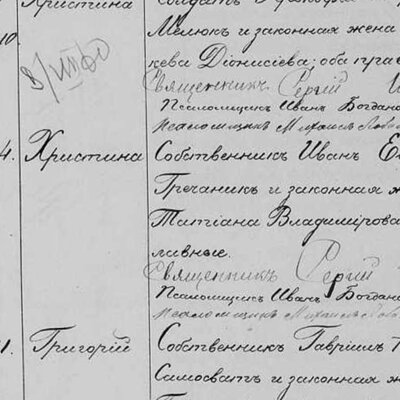 Христина
Мелюк и законная жена
10.
кева Дионисіева; оба пра
Священникъ Сергій
Псаломщикъ Иванъ Богдано
Псаломщикъ Михаилъ
4. Христина Собственникъ Иванъ
Гречаникъ и законная ж
Татіана Владимірова
лавные.
Священникъ Сергій
Псаломщикъ Иванъ Богдано
Псаломщикъ Михаилъ
1. Григорій Собственникъ Гавріилъ
Самосватъ и законная ж